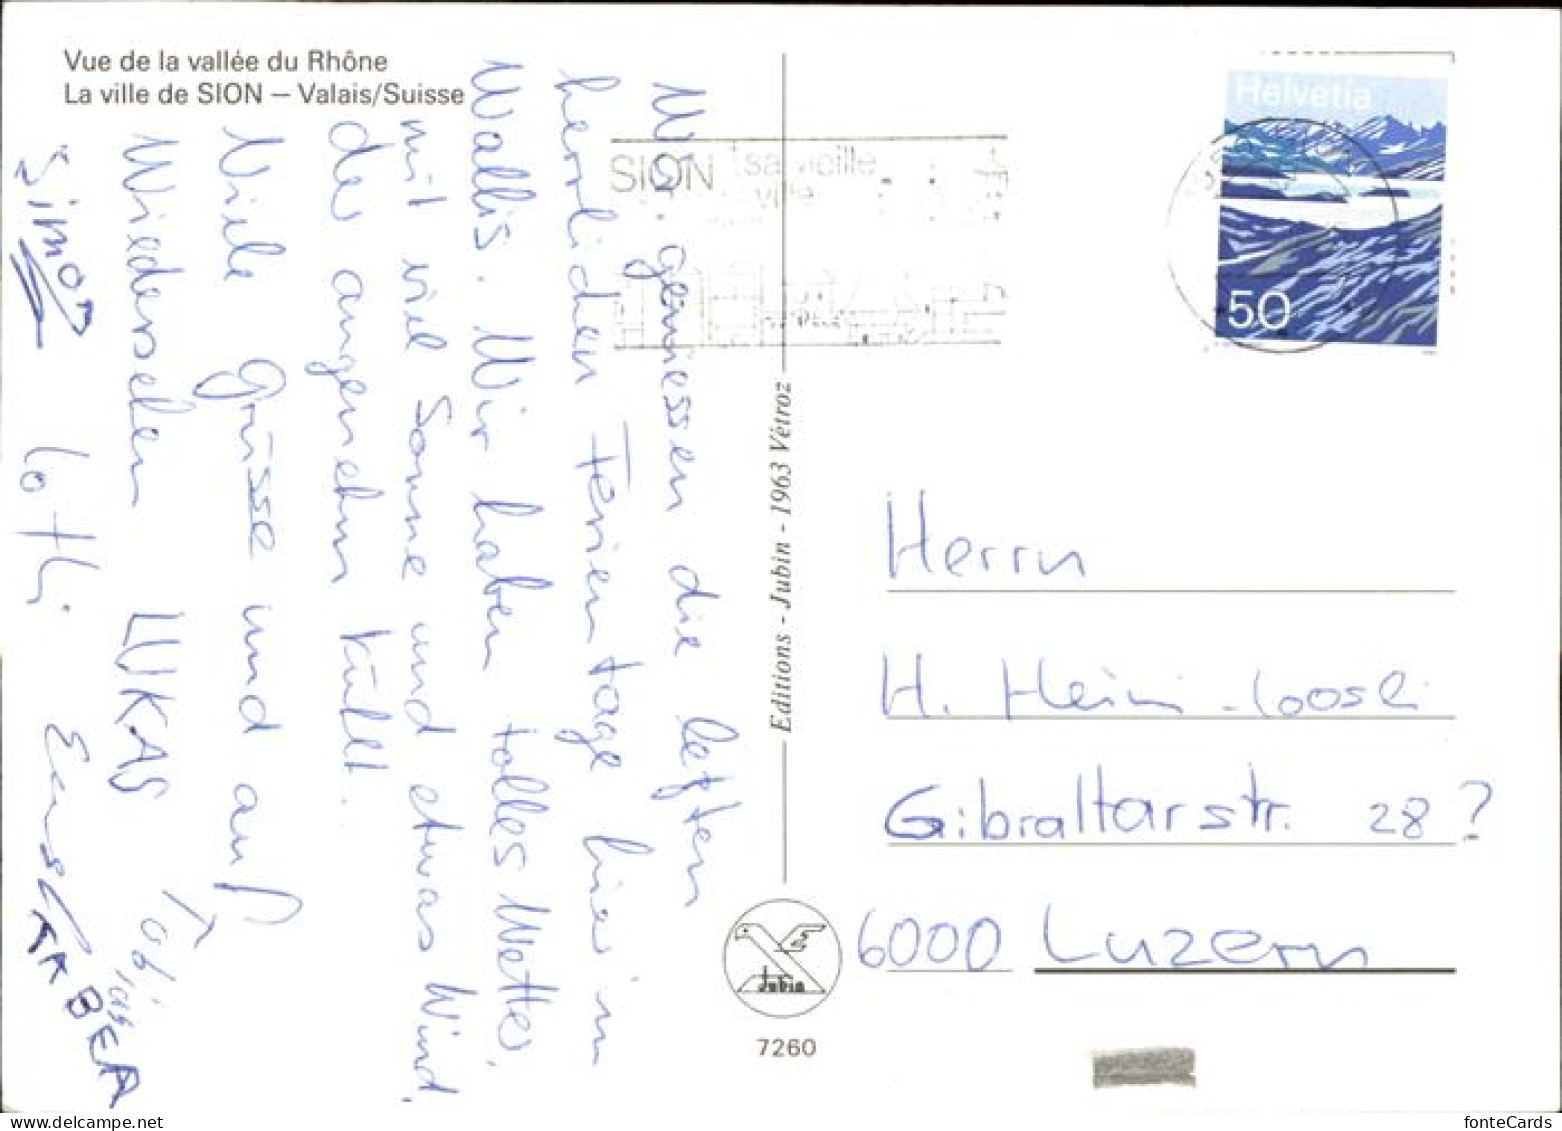 Vue de la vallée du Rhône
La ville de SION – Valais/Suisse
Wir geniessen die letzten
herrlichen Ferientage hier im
Wallis. Wir haben tolles Wetter,
mit viel Sonne und etwas Wind,
der angenehm kühlt.
Viele Grüsse und auf
Wiedersehen LUKAS Tobias
Simon Lotti TABEA
SION sa vieille
ville
Helvetia
50
Editions - Jubin - 1963 Vétroz
Jubin
7260
Herrn
H. Heini-Loosli
Gibraltarstr. 28?
6000 Luzern
fonteCards